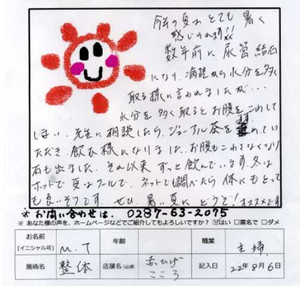 今年の夏は とても 暑く
感じられます!!
数年前に 尿管結石
になり、病院から水分を多く
取る様に言われましたが…
水分を多く取るとお腹をこわして
しまい、先生に相談したら、ジョーナル茶を 入れてい
ただき、飲む様になりました。お腹もこわれなくなり
石も出ました。それ以来ずっと飲んでいます。冬は
ホットで 夏はクールで、ネットでも調べたら 体にもとて
も良いそうです。ぜひ 暑い夏に どうぞ!オススメです
*お問い合わせは、0287-63-2075
あなた様の声を、ホームページなどでご紹介してもよろしいですか? はい □匿名で □ダメ
お名前
(イニシャル可)
M.T
年齢
職業
主婦
施術名
整体
店舗名
赤ひげ
こころ
記入日
22年9月6日